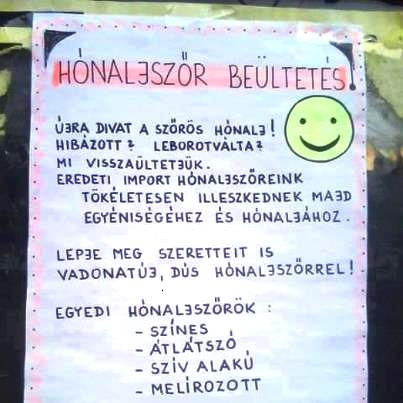 HÓNALJSZŐR BEÜLTETÉS!
ÚJRA DIVAT A SZŐRÖS HÓNALJ!
HIBÁZOTT? LEBOROTVÁLTA?
MI VISSZAÜLTETJÜK.
EREDETI IMPORT HÓNALJSZŐREINK
TÖKÉLETESEN ILLESZKEDNEK MAJD
EGYÉNISÉGÉHEZ ÉS HÓNALJÁHOZ.
LEPJE MEG SZERETTEIT IS
VADONATÚJ, DÚS HÓNALJSZŐRREL!
EGYEDI HÓNALJSZŐRÖK:
- SZÍNES
- ÁTLÁTSZÓ
- SZÍV ALAKÚ
- MELÍROZOTT